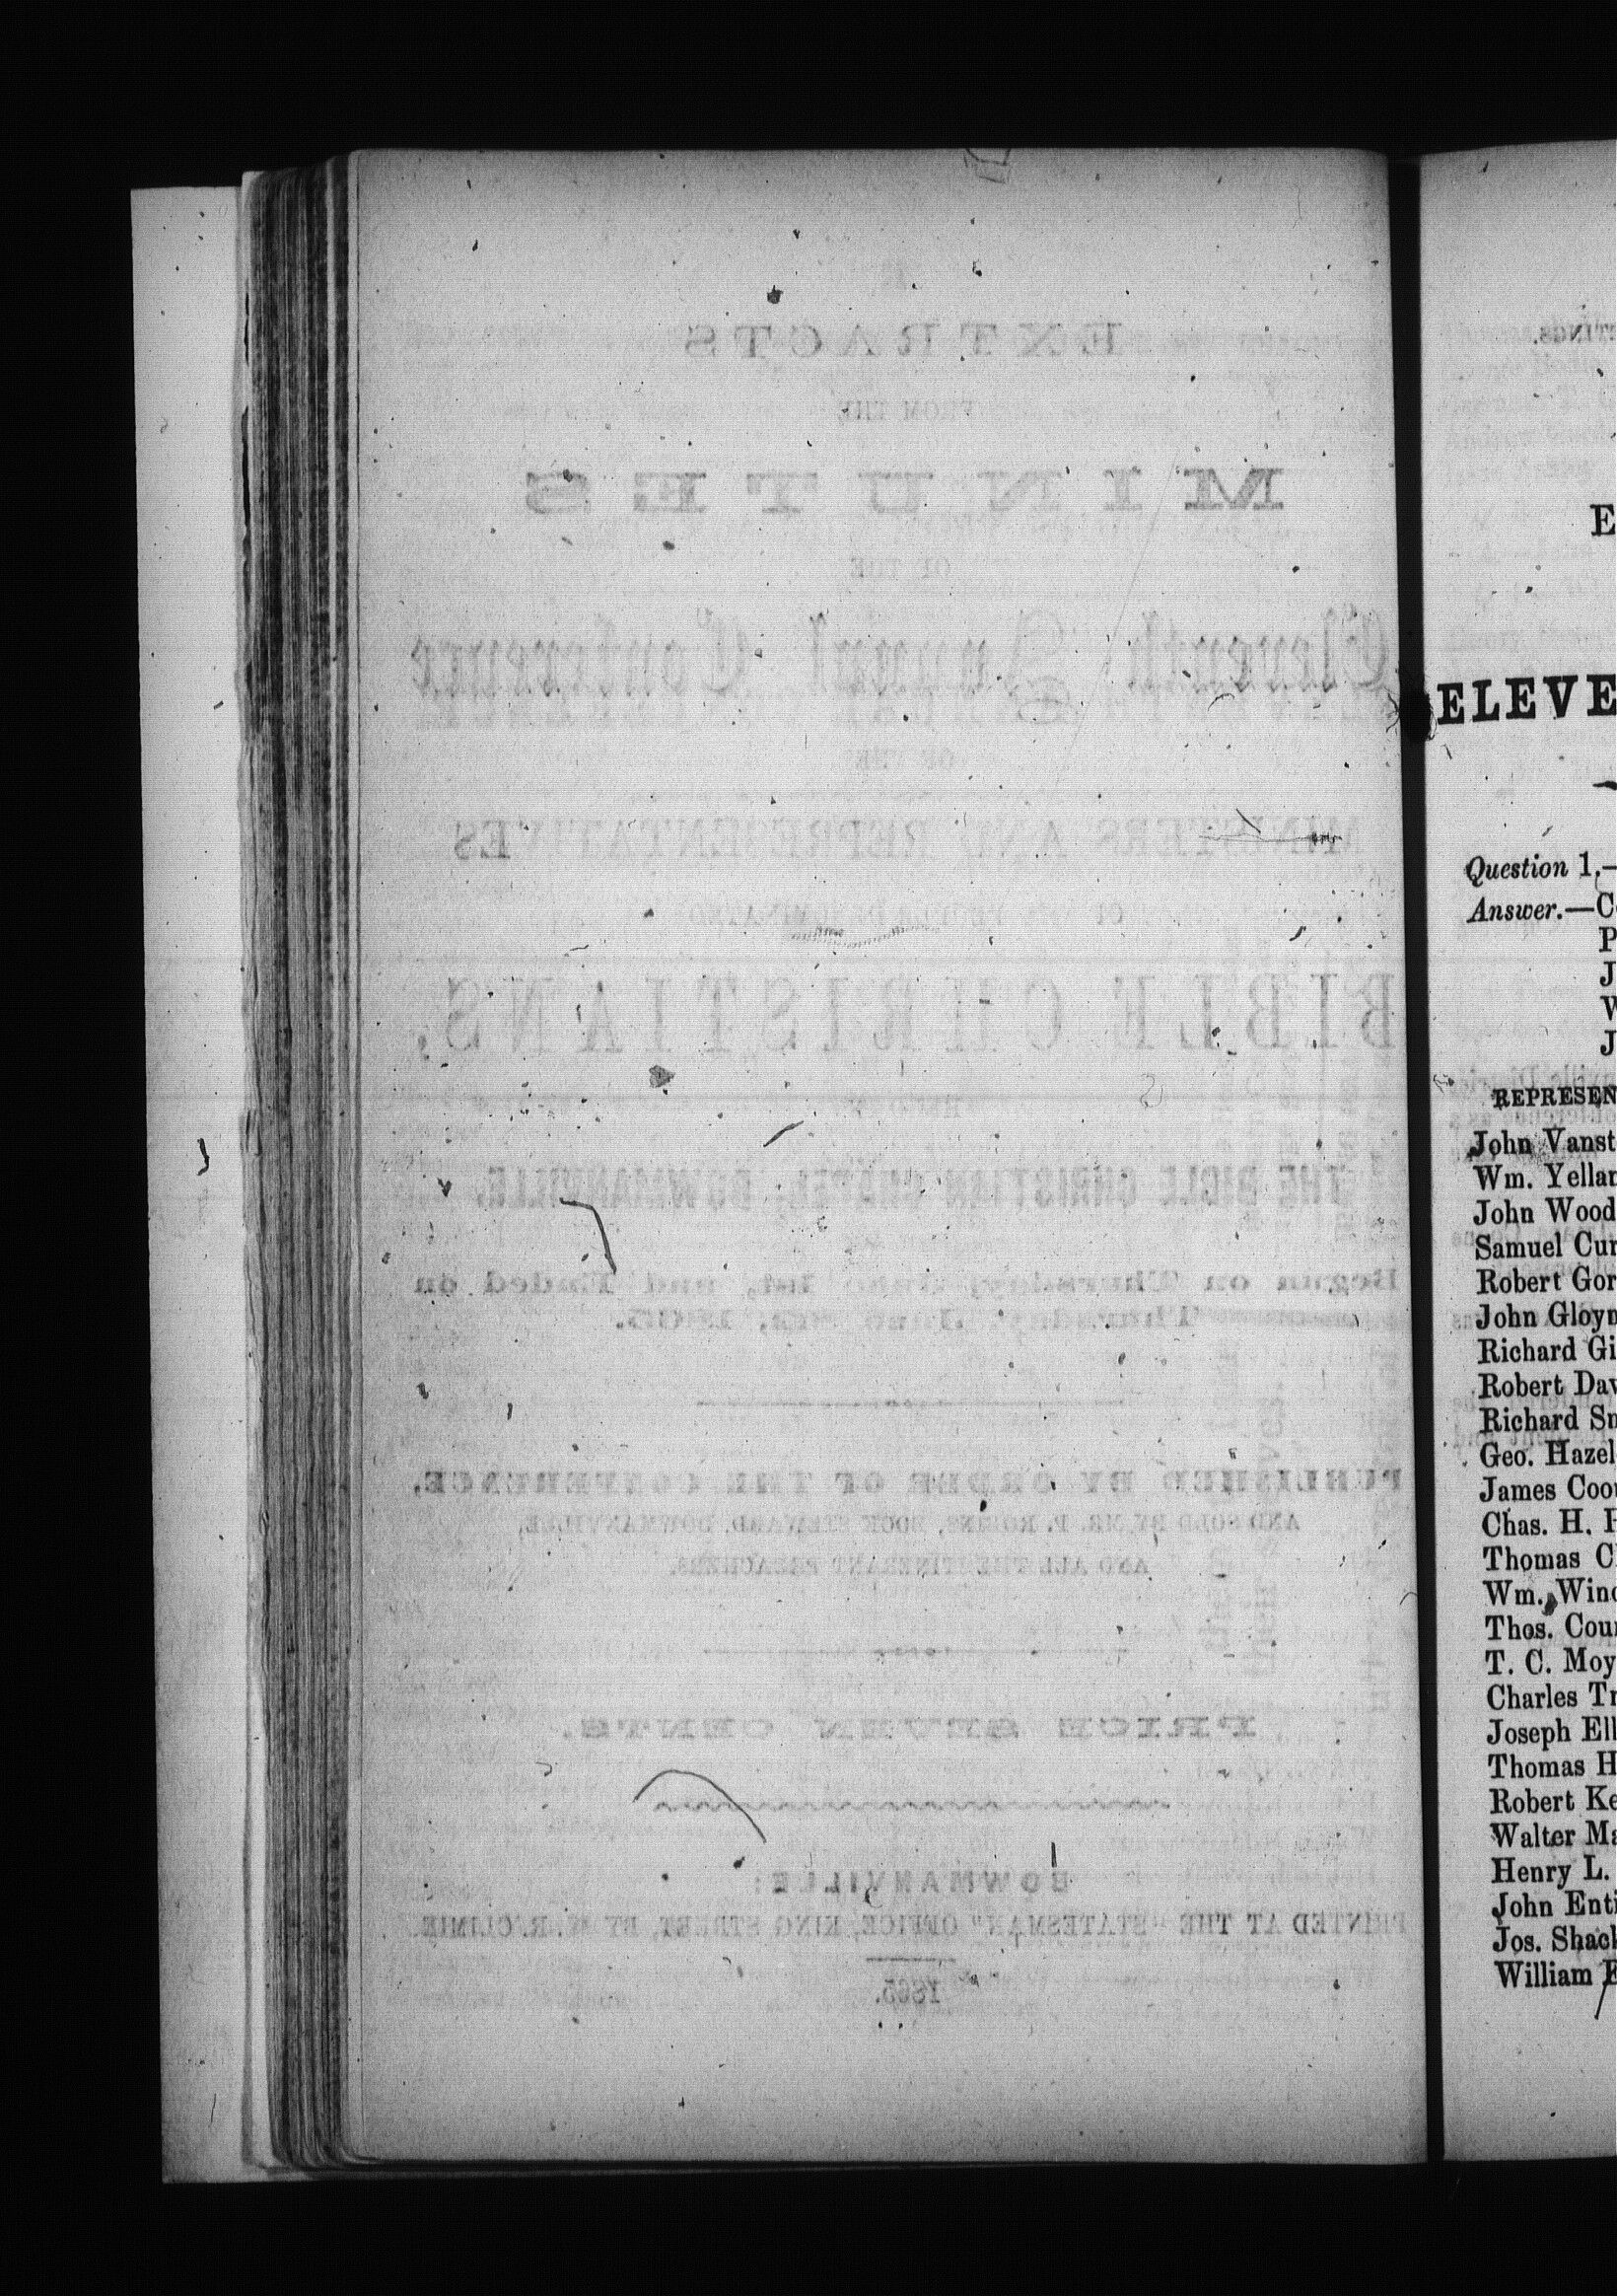 EXTRACTS
FROM THE
MINUTES
OF THE
Eleventh Annual Conference
OF THE
MINISTERS AND REPRESENTATIVES
BIBLE CHRISTIANS,
THE BIBLE CHRISTIAN CHAPEL, BOWMANVILLE,
Begun on Thursday, June 1st, and Ended on
Thursday, June 1865.
PUBLISHED BY ORDER OF THE CONFERENCE,
AND SOLD BY MR. P. ROBINS, BOOK STEWARD, BOWMANVILLE,
AND ALL THE ITINERANT PREACHERS.
PRICE SEVEN CENTS.
BOWMANVILLE:
PRINTED AT THE "STATESMAN" OFFICE, KING STREET, BY W. R. CLIMIE.
1865.
TINGS.
E
ELEVE
Question 1.—
Answer.—C
P
J
W
J
REPRESEN
John Vanst
Wm. Yellan
John Wood
Samuel Cur
Robert Gor
John Gloyn
Richard Gi
Robert Dav
Richard Sn
Geo. Hazel
James Coo
Chas. H. H
Thomas Cl
Wm. Winc
Thos. Cour
T. C. Moy
Charles Tr
Joseph Ell
Thomas H
Robert Ke
Walter Ma
Henry L.
John Enti
Jos. Shack
William E